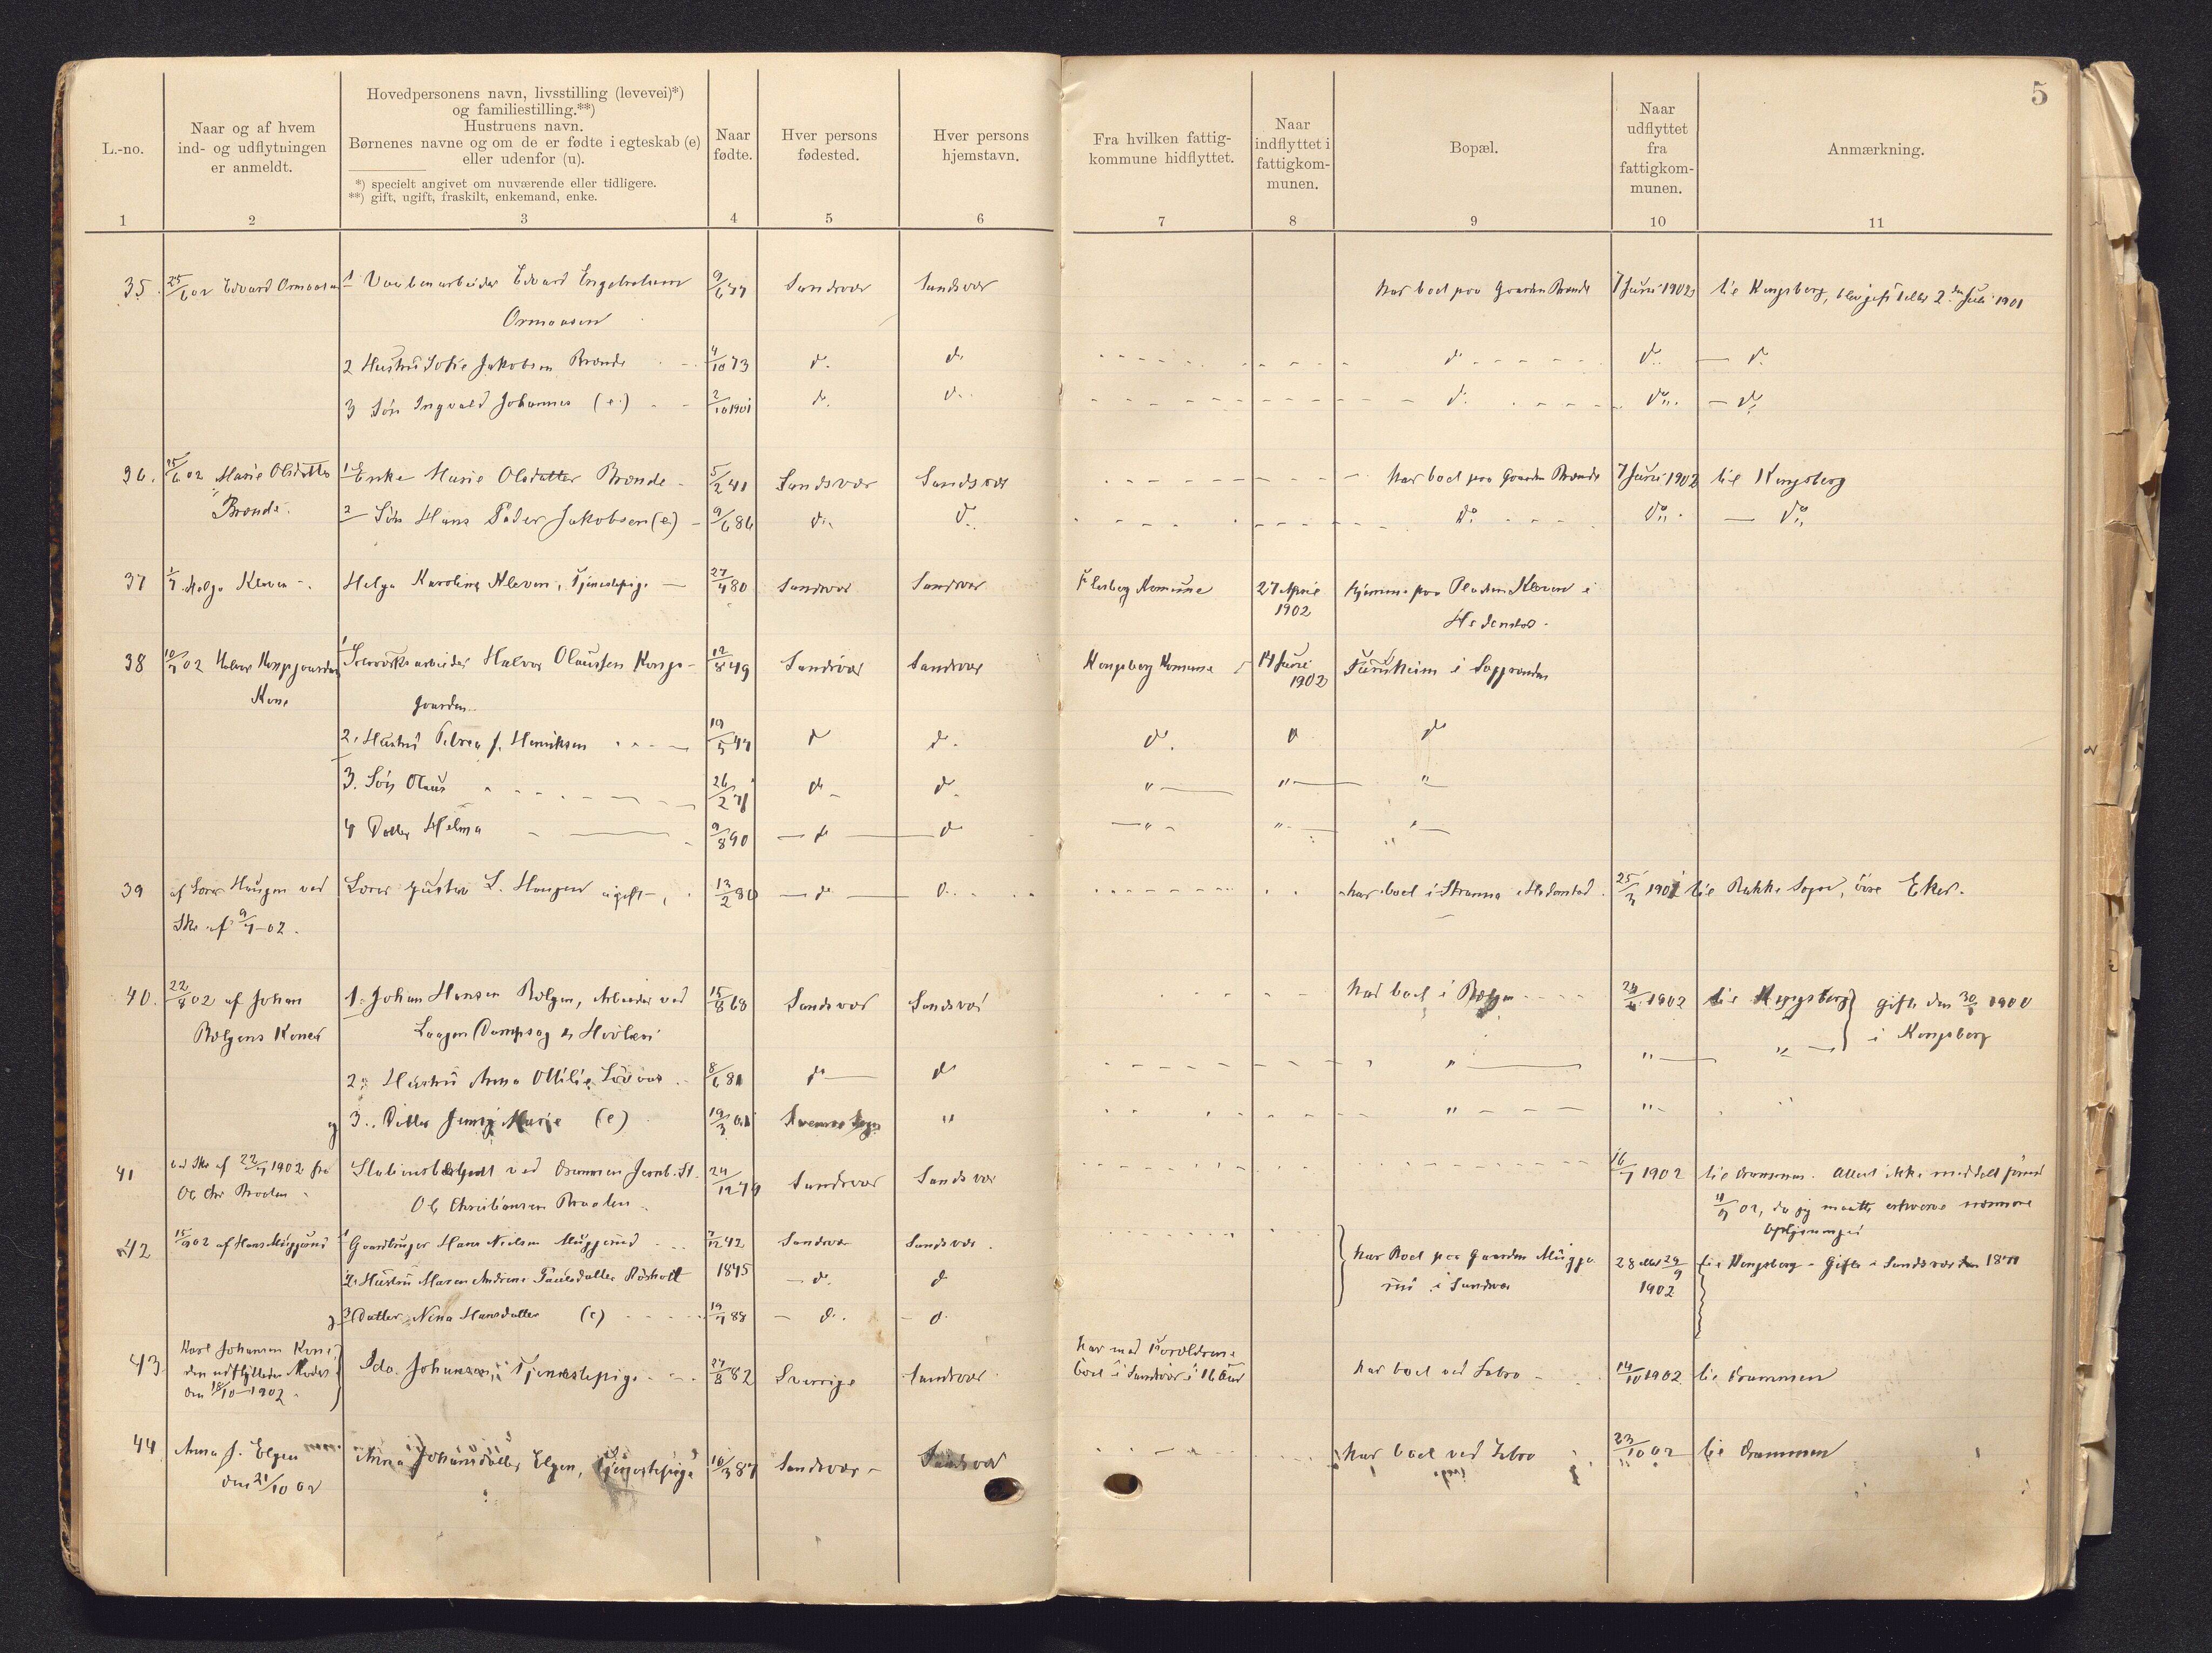 5
L.-no.
Naar og af hvem
ind- og udflytningen
er anmeldt.
Hovedpersonens navn, livsstilling (levevei)*)
og familiestilling.**)
Hustruens navn.
Børnenes navne og om de er fødte i egteskab (e)
eller udenfor (u).
*) specielt angivet om nuværende eller tidligere.
**) gift, ugift, fraskilt, enkemand, enke.
Naar
fødte.
Hver persons
fødested.
Hver persons
hjemstavn.
Fra hvilken fattig-
kommune hidflyttet.
Naar
indflyttet i
fattigkom-
munen.
Bopæl.
Naar
udflyttet
fra
fattigkom-
munen.
Anmærkning.
1 2 3 4 5 6 7 8 9 10 11
35. 25/6 02 Edvard Ormaasen 1 Vaabenarbeider Edvard Engebretsen 9/6 77 Sandsvær Sandsvær har boet paa Gaarden Brænde 7 Juni 1902 til Kongsberg, blev gift 2den Juli 1901
Ormaasen
2 Hustru Sofie Jakobsen Brænde 4/10 73 do. do. do do do
3 Søn Ingvald Johannes (e) 2/10 1901 do. do. do do do
36. 25/6 02 Marie Olsdatter 1 Enke Marie Olsdatter Brænde 5/2 41 Sandsvær Sandsvær har boet paa Gaarden Brænde 7 Juni 1902 til Kongsberg
Brænde.
2 Søn Hans Peder Jakobsen (e) 9/6 86 do. do. do. do. do.
37 Helga Kleven Helga Karoline Kleven, Tjenestepige 27/4 80 Sandsvær Sandsvær Flesberg Komune 27 April Hjemme paa Pladsen Kleven i
1902 Hedenstad.
38 10/7 02 Halvor Kongsgaardens Halvor Olaussen Kongs- 12/8 49 Sandsvær Sandsvær Kongsberg Komune 14 Juni Furuheim i Saggrenden
Kone gaarden 1902
2. Hustru f. Henriksen 19/5 47 do do. do. do do
3. Søn Olaus 26/2 71 do do " " "
4 Datter Helma 9/8 90 do do " " "
39 af Lærer Haugen ved Lærer Gustav L. Haugen ugift 13/2 80 do do. har boet i Hedenstad 25/3 1902 til Bakke Sogn, øvre Eker.
Skr af 9/7-02.
40. 22/8 02 af Johan 1. Johan Hansen Bølgen, Arbeider ved 15/8 68 Sandsvær Sandsvær har boet i 1902 til Kongsberg gift den 30/ 1900
Bølgens Kone Laagen Dampsag & Høvleri i Kongsberg
2. Hustru Anna Ottilie 8/6 81 do do " " "
3. Datter Jenny Marie (e) 19/3 01 Sogn " " "
41 ved Skr af 22/7 1902 fra Stationsbetjent ved Drammen Jernb. St. 24/12 74 Sandsvær Sandsvær 16/7 1902 til Drammen. ikke meddelt
Ole Chr Braaten Ole Christiansen Braaten 02, da jeg maatte erhverve nærmere
oplysninger
42 15/9 02 af Hans Muggerud 1 Gaardbruger Hans Nielsen Muggerud 7/12 42 Sandsvær Sandsvær. har Boet paa Gaarden Mugge- 28 eller 29/9 til Kongsberg - Gifte i Sandsvær 1871
2. Hustru Maren Andrine Paulsdatter Røsholt 1845 do. do rud i Sandsvær 1902
3 Datter Nina Hansdatter (e) 19/7 88 do. do.
43. Karl Johansen Kone, Ida Johansen, Tjenestepige 27/8 82 Sverrige Sandsvær har med Forældrene har boet ved Labro 14/10 1902 til Drammen
den udflyttedes Moder boet i Sandsvær i 16 Aar
den 18/10 1902
44 Anna J. Elgen Anna Johansdatter Elgen, Tjenestepige 16/3 87 Sandsvær Sandsvær har boet ved Labro 23/10 02 til Drammen
den 21/10 02